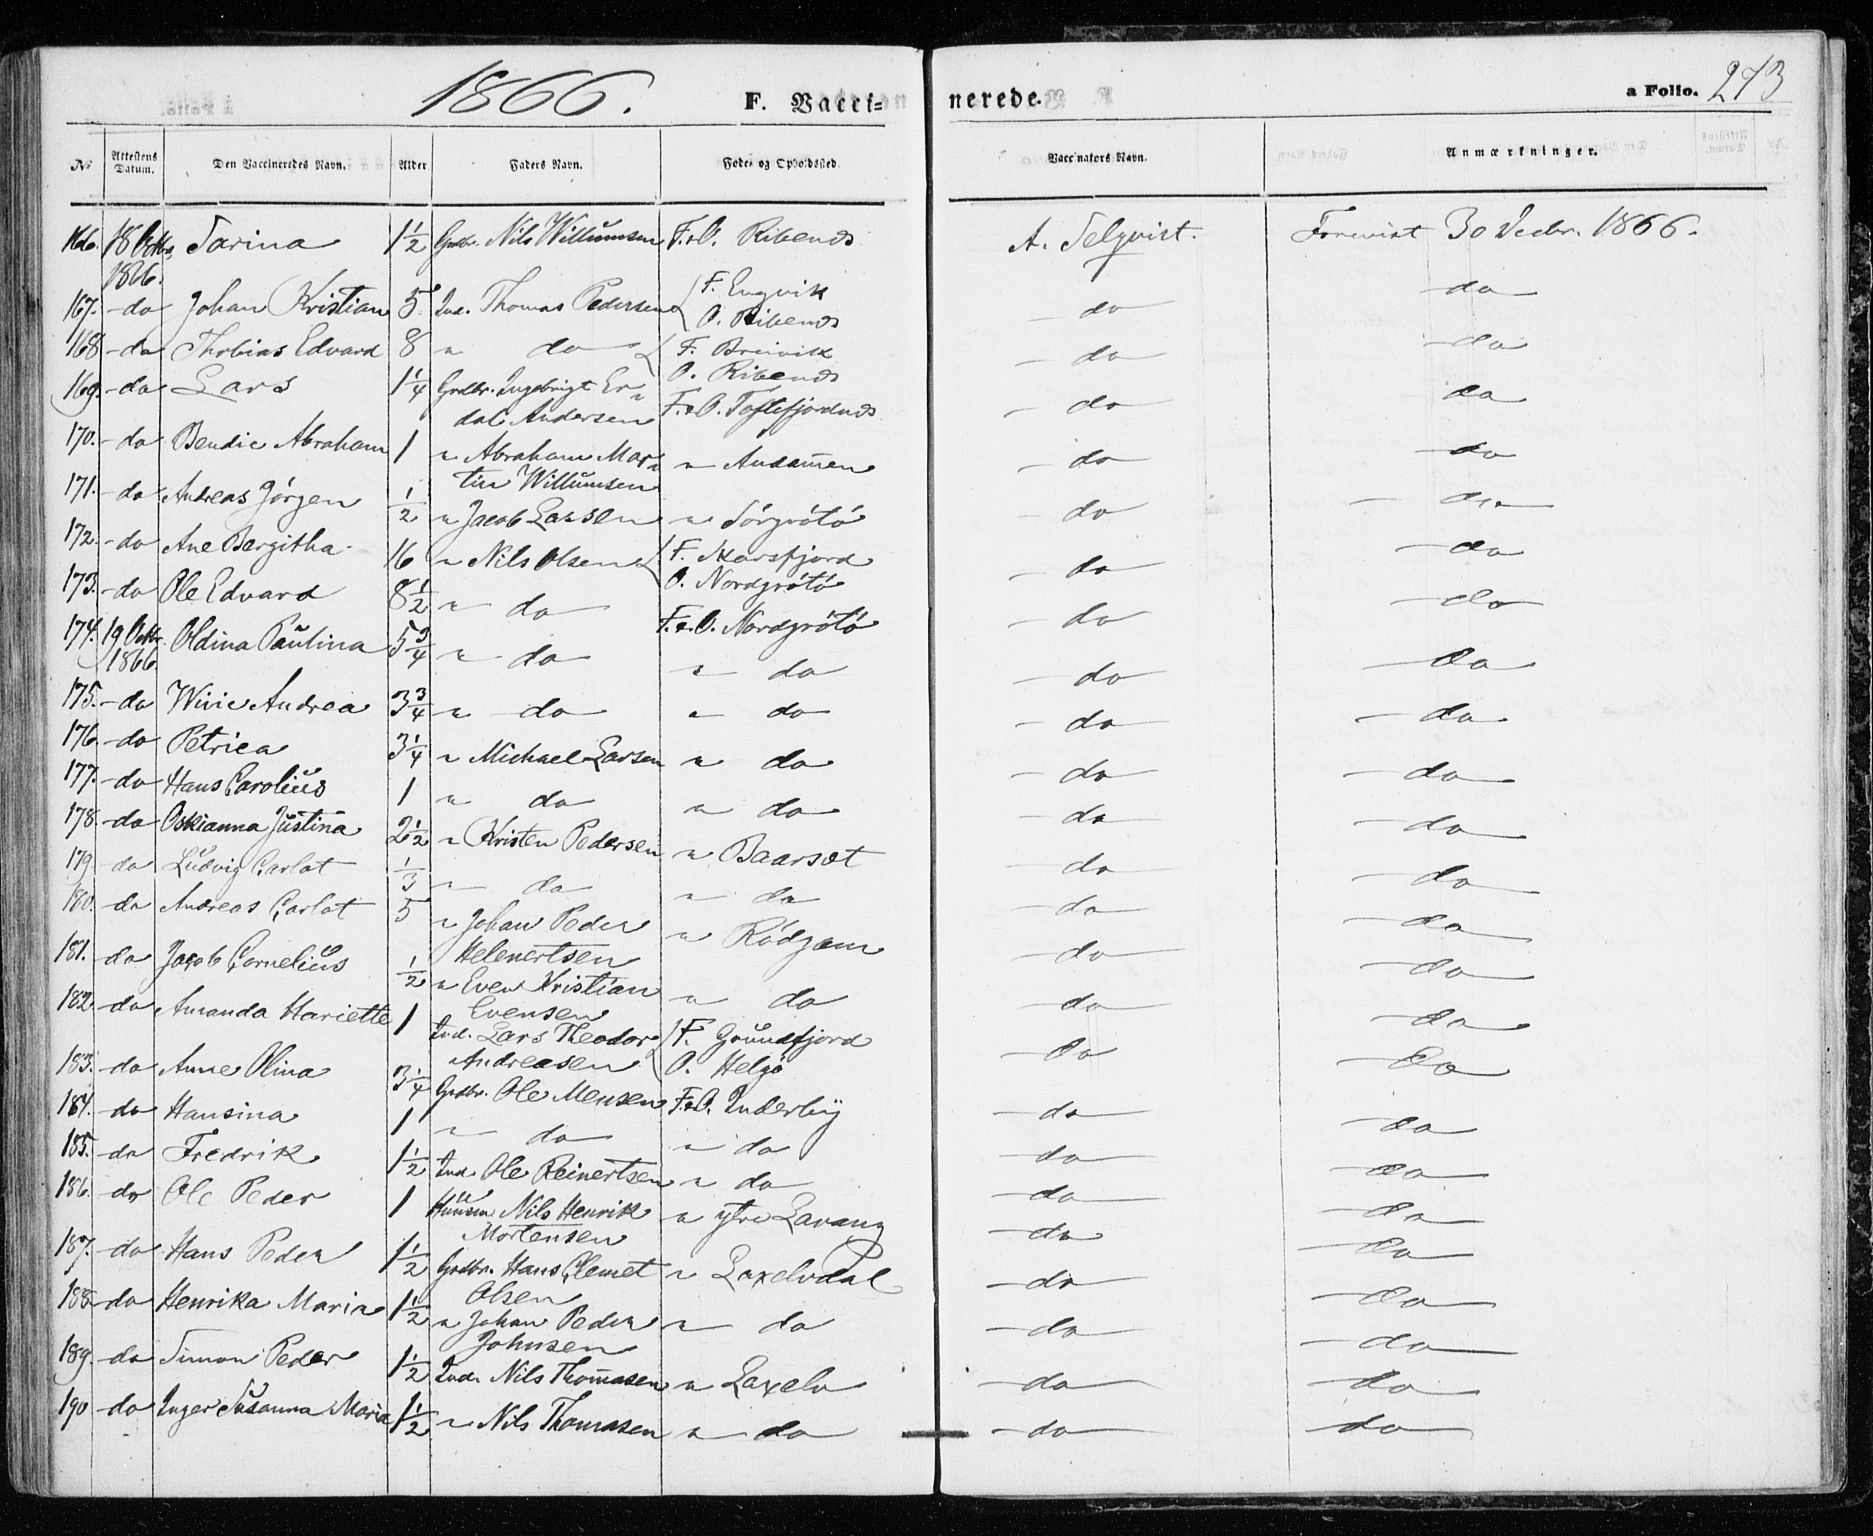 1866.
F. Vaccinerede.
a Folio. 273
No Attestens Datum. Den Vaccineredes Navn. Alder Faders Navn. Føde- og Opholdssted. Vaccinators Navn. Anmærkninger.
166. 18 Octbr. 1866. Sarina 1½ Grdbr. Nils Willumsen F.&O. Ribends A. Selqvist. Forevist 30 Decbr. 1866.
167. - do Johan Kristian 5 Ind. Thomas Pedersen F. Engvik O. Ribends - do - do
168 - do Thobias Edvard 8 " do F. Breivik O. Ribends - do - do
169. - do Lars 1¼ Grdbr. Ingebrigt Erdal Andersen F.&O. Toftefjordnds - do - do
170. - do Bendic Abraham 1 " Abraham Martin Willumsen " Andammen - do - do
171. - do Andreas Jørgen ½ " Jacob Larsen " Sørgrøtø - do - do
172. - do Ane Bergitha 16 " Nils Olsen F. O. Nordgrøtø - do - do
173. - do Ole Edvard 8½ " do F.&O. Nordgrøtø - do - do
174. 19 Octbr. 1866. Oldina Paulina 5¾ " do " do - do - do
175. - do Wivie Andrea 3¾ " do " do - do - do
176. - do Petrica 3¼ " Michael Larsen " do - do - do
177. - do Hans Carolius 1 " do " do - do - do
178. - do Oskianna Justina 2½ " Kristen Pedersen " Baarset - do - do
179. - do Ludvig Carlot ⅓ " do " do - do - do
180. - do Andreas Carlot 5 " Johan Peder Helenertsen " Rødgam - do - do
181. - do Jacob Cornelius ½ " Even Kristian Evensen " do - do - do
182. - do Amanda Hariette 1 Ind. Lars Theodor Andreasen F. Grundfjord O. Helgø - do - do
183. - do Anne Olina 3¼ Grdbr. Ole Mensen F.&O. Inderby - do - do
184. - do Hansina 1 " do " do - do - do
185. - do Fredrik 1½ Ind. Ole Reinertsen " do - do - do
186. - do Ole Peder 1 Huusm Nils Henrik Mortensen " ytre Lavang - do - do
187. - do Hans Peder 1½ Grdbr. Hans Clemet Olsen " Laxelvdal - do - do
188 - do Henrika Maria 1½ " Johan Peder Johnsen " do - do - do
189. - do Simon Peder 1½ Ind. Nils Thomasen " Laxelv - do - do
190 - do Inger Susanna Maria 1½ " Nils Thomasen " do - do - do